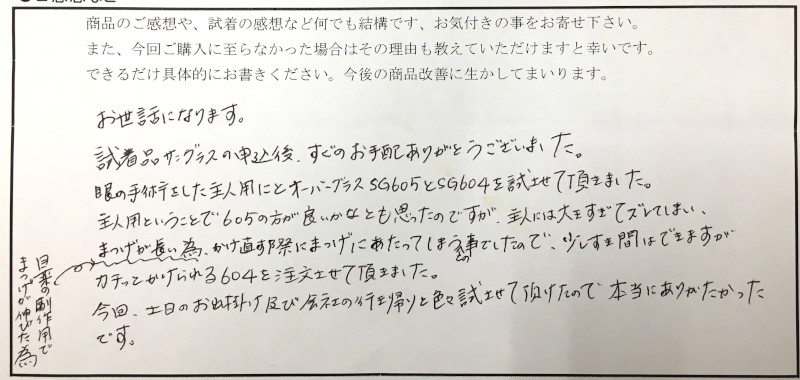 商品のご感想や、試着の感想など何でも結構です、お気付きの事をお寄せ下さい。
また、今回ご購入に至らなかった場合はその理由も教えていただけますと幸いです。
できるだけ具体的にお書きください。今後の商品改善に生かしてまいります。
お世話になります。
試着品サングラスの申込後、すぐのお手配ありがとうございました。
眼の手術をした主人用にとオーバーグラスSG605とSG604を試させて頂きました。
主人用ということで605の方が良いかなとも思ったのですが、主人には大きすぎてズレてしまい、
まつげが長い為、かけ直す際にまつげにあたってしまう事でしたので、少しすき間はできますが
カチッとかけられる604を注文させて頂きました。
今回、土日のお出掛け及び会社の行き帰りと色々試させて頂けたので本当にありがたかった
です。
目薬の副作用で
まつげが伸びた為